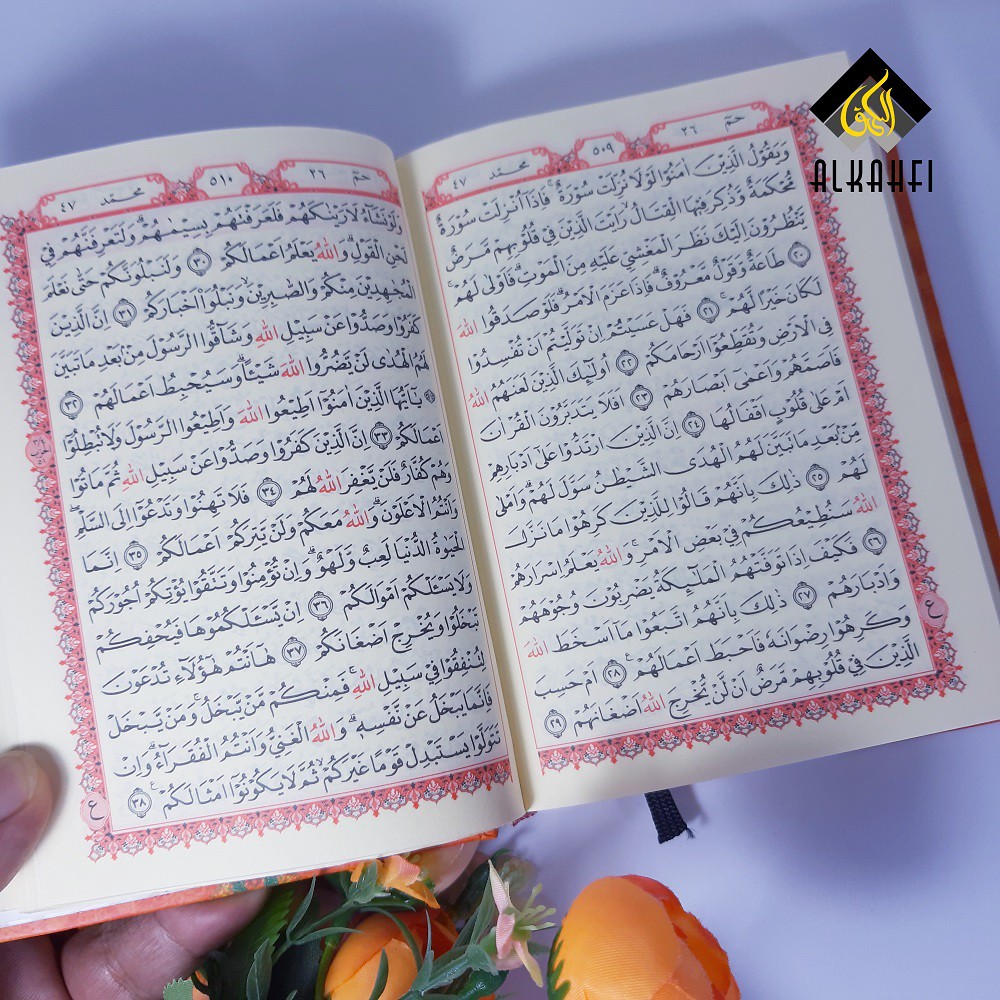 الكهف
ALKAHFI
حم ٢٦
٥٠٩
محمد ٤٧
وَيَقُولُ الَّذِينَ اٰمَنُوْا لَوْلَا نُزِّلَتْ سُوْرَةٌ ۚ فَاِذَآ اُنْزِلَتْ سُوْرَةٌ
مُّحْكَمَةٌ وَّذُكِرَ فِيْهَا الْقِتَالُ ۙ رَاَيْتَ الَّذِيْنَ فِيْ قُلُوْبِهِمْ مَّرَضٌ
يَّنْظُرُوْنَ اِلَيْكَ نَظَرَ الْمَغْشِيِّ عَلَيْهِ مِنَ الْمَوْتِ ۗ فَاَوْلٰى لَهُمْ ۚ ﴿٢٠﴾
طَاعَةٌ وَّقَوْلٌ مَّعْرُوْفٌ ۗ فَاِذَا عَزَمَ الْاَمْرُ ۗ فَلَوْ صَدَقُوا اللّٰهَ
لَكَانَ خَيْرًا لَّهُمْ ۚ ﴿٢١﴾ فَهَلْ عَسَيْتُمْ اِنْ تَوَلَّيْتُمْ اَنْ تُفْسِدُوْا
فِى الْاَرْضِ وَتُقَطِّعُوْٓا اَرْحَامَكُمْ ﴿٢٢﴾ اُولٰٓئِكَ الَّذِيْنَ لَعَنَهُمُ اللّٰهُ
فَاَصَمَّهُمْ وَاَعْمٰٓى اَبْصَارَهُمْ ﴿٢٣﴾ اَفَلَا يَتَدَبَّرُوْنَ الْقُرْاٰنَ
اَمْ عَلٰى قُلُوْبٍ اَقْفَالُهَا ﴿٢٤﴾ اِنَّ الَّذِيْنَ ارْتَدُّوْا عَلٰٓى اَدْبَارِهِمْ
مِّنْۢ بَعْدِ مَا تَبَيَّنَ لَهُمُ الْهُدَى الشَّيْطٰنُ سَوَّلَ لَهُمْ ۗ وَاَمْلٰى
لَهُمْ ﴿٢٥﴾ ذٰلِكَ بِاَنَّهُمْ قَالُوْا لِلَّذِيْنَ كَرِهُوْا مَا نَزَّلَ
اللّٰهُ سَنُطِيْعُكُمْ فِيْ بَعْضِ الْاَمْرِ ۚ وَاللّٰهُ يَعْلَمُ اِسْرَارَهُمْ
﴿٢٦﴾ فَكَيْفَ اِذَا تَوَفَّتْهُمُ الْمَلٰٓئِكَةُ يَضْرِبُوْنَ وُجُوْهَهُمْ
وَاَدْبَارَهُمْ ﴿٢٧﴾ ذٰلِكَ بِاَنَّهُمُ اتَّبَعُوْا مَآ اَسْخَطَ اللّٰهَ
وَكَرِهُوْا رِضْوَانَهٗ فَاَحْبَطَ اَعْمَالَهُمْ ࣖ ﴿٢٨﴾ اَمْ حَسِبَ
الَّذِيْنَ فِيْ قُلُوْبِهِمْ مَّرَضٌ اَنْ لَّنْ يُّخْرِجَ اللّٰهُ اَضْغَانَهُمْ ﴿٢٩﴾
ع
حم ٢٦
٥١٠
محمد ٤٧
وَلَوْ نَشَآءُ لَاَرَيْنٰكَهُمْ فَلَعَرَفْتَهُمْ بِسِيْمٰهُمْ ۗ وَلَتَعْرِفَنَّهُمْ فِيْ
لَحْنِ الْقَوْلِ ۗ وَاللّٰهُ يَعْلَمُ اَعْمَالَكُمْ ﴿٣٠﴾ وَلَنَبْلُوَنَّكُمْ حَتّٰى نَعْلَمَ
الْمُجٰهِدِيْنَ مِنْكُمْ وَالصّٰبِرِيْنَ ۙ وَنَبْلُوَا۟ اَخْبَارَكُمْ ﴿٣١﴾ اِنَّ الَّذِيْنَ
كَفَرُوْا وَصَدُّوْا عَنْ سَبِيْلِ اللّٰهِ وَشَآقُّوا الرَّسُوْلَ مِنْۢ بَعْدِ مَا تَبَيَّنَ
لَهُمُ الْهُدٰى لَنْ يَّضُرُّوا اللّٰهَ شَيْـًٔا ۗ وَسَيُحْبِطُ اَعْمَالَهُمْ ﴿٣٢﴾
يٰٓاَيُّهَا الَّذِيْنَ اٰمَنُوْٓا اَطِيْعُوا اللّٰهَ وَاَطِيْعُوا الرَّسُوْلَ وَلَا تُبْطِلُوْٓا
اَعْمَالَكُمْ ﴿٣٣﴾ اِنَّ الَّذِيْنَ كَفَرُوْا وَصَدُّوْا عَنْ سَبِيْلِ اللّٰهِ ثُمَّ مَاتُوْا
وَهُمْ كُفَّارٌ فَلَنْ يَّغْفِرَ اللّٰهُ لَهُمْ ﴿٣٤﴾ فَلَا تَهِنُوْا وَتَدْعُوْٓا اِلَى السَّلْمِ ۖ
وَاَنْتُمُ الْاَعْلَوْنَ ۗ وَاللّٰهُ مَعَكُمْ وَلَنْ يَّتِرَكُمْ اَعْمَالَكُمْ ﴿٣٥﴾ اِنَّمَا
الْحَيٰوةُ الدُّنْيَا لَعِبٌ وَّلَهْوٌ ۗ وَاِنْ تُؤْمِنُوْا وَتَتَّقُوْا يُؤْتِكُمْ اُجُوْرَكُمْ
وَلَا يَسْـَٔلْكُمْ اَمْوَالَكُمْ ﴿٣٦﴾ اِنْ يَّسْـَٔلْكُمُوْهَا فَيُحْفِكُمْ
تَبْخَلُوْا وَيُخْرِجْ اَضْغَانَكُمْ ﴿٣٧﴾ هٰٓاَنْتُمْ هٰٓؤُلَآءِ تُدْعَوْنَ
لِتُنْفِقُوْا فِيْ سَبِيْلِ اللّٰهِ ۚ فَمِنْكُمْ مَّنْ يَّبْخَلُ ۚ وَمَنْ يَّبْخَلْ
فَاِنَّمَا يَبْخَلُ عَنْ نَّفْسِهٖ ۗ وَاللّٰهُ الْغَنِيُّ وَاَنْتُمُ الْفُقَرَآءُ ۗ وَاِنْ
تَتَوَلَّوْا يَسْتَبْدِلْ قَوْمًا غَيْرَكُمْ ۙ ثُمَّ لَا يَكُوْنُوْٓا اَمْثَالَكُمْ ࣖ ﴿٣٨﴾
ع